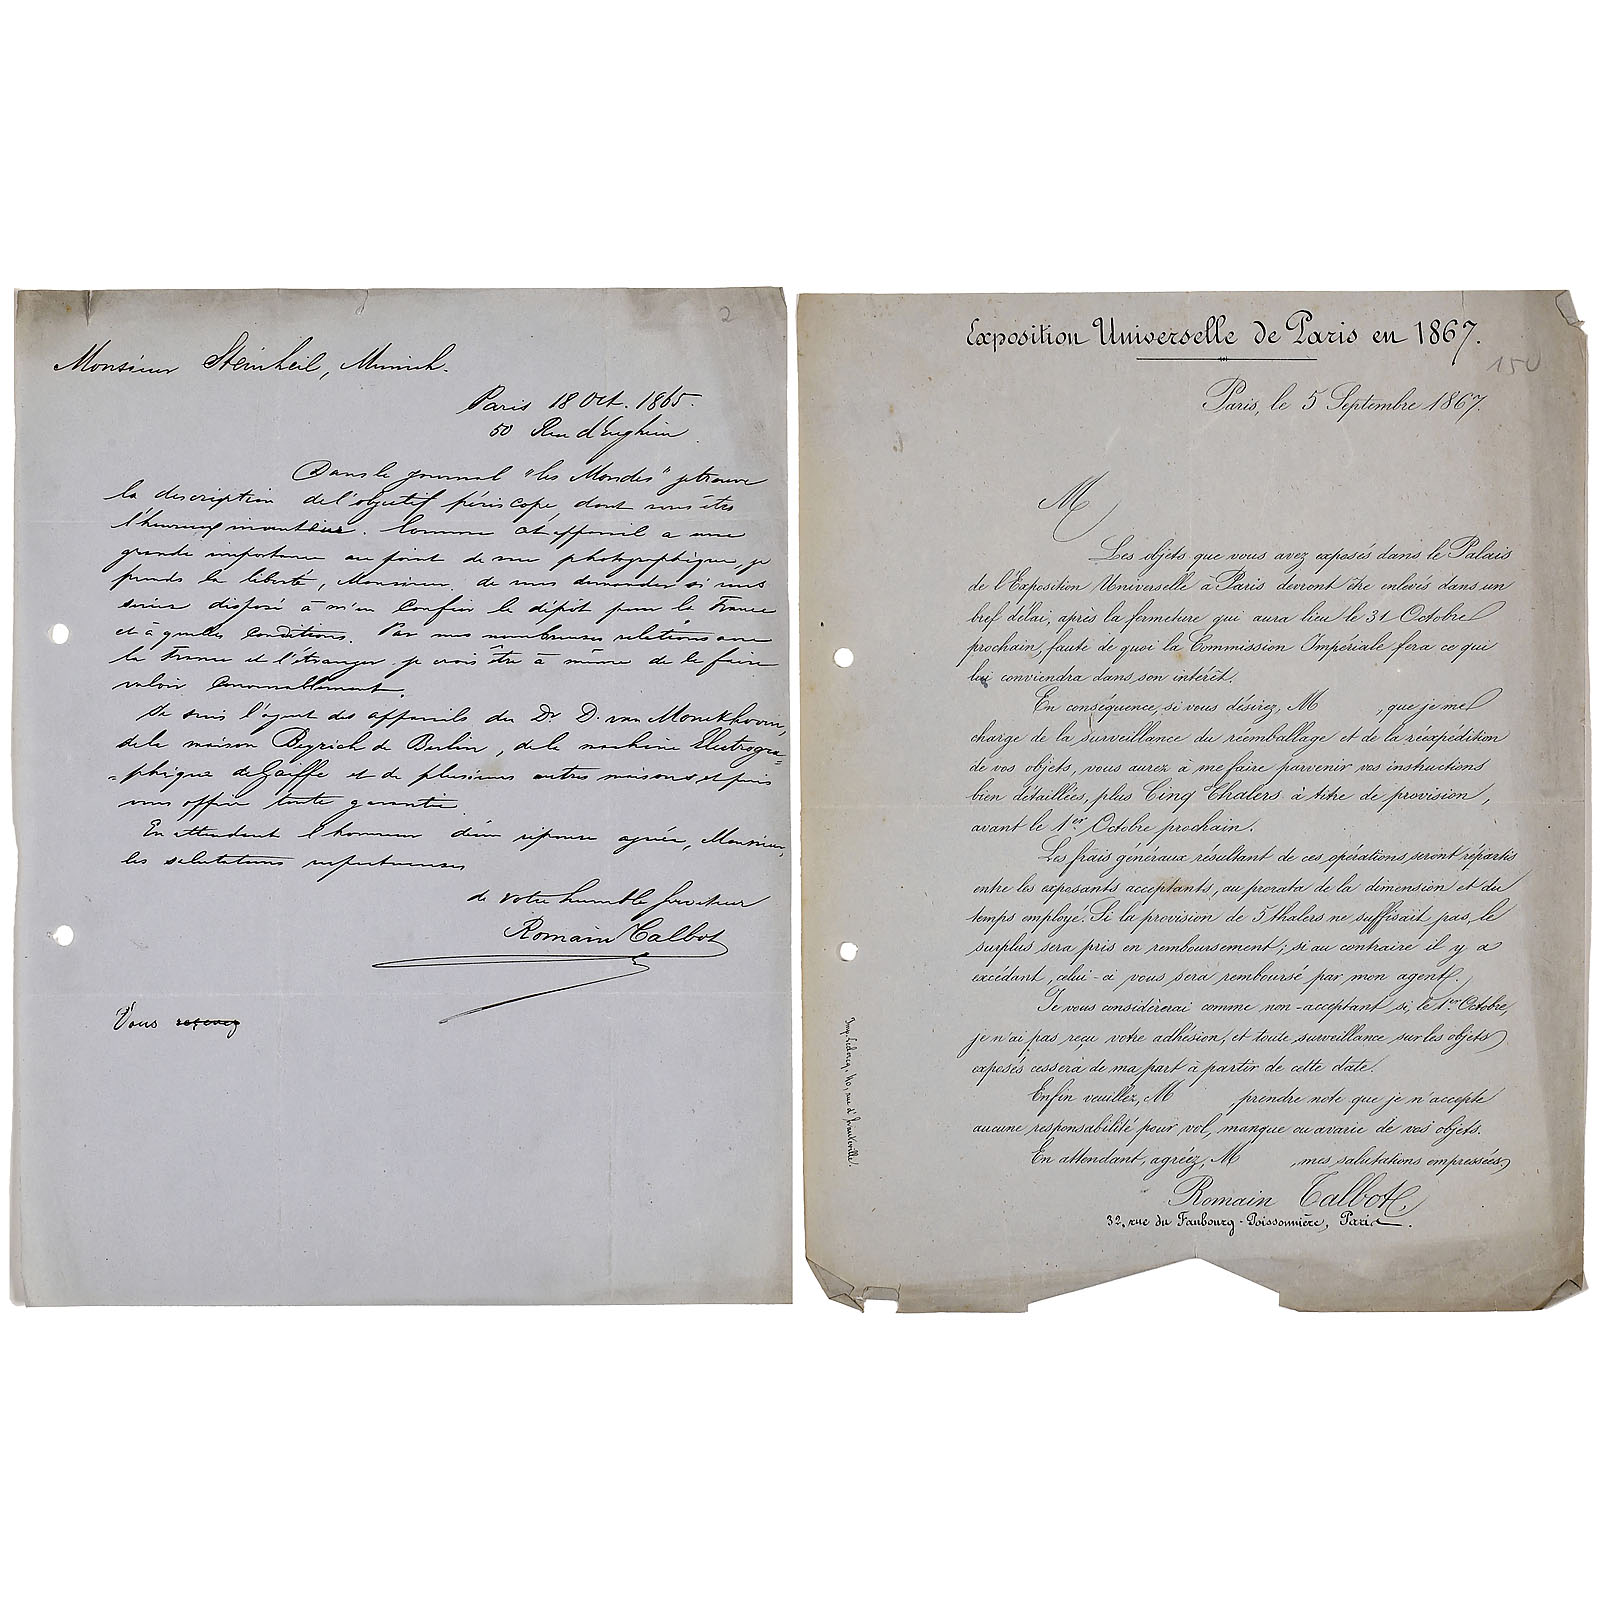 2
Monsieur Steinheil, Munich.
Paris 18 Oct. 1865.
50 Rue d'Enghien
Dans le journal "les Mondes" je trouve
la description de l'objectif périscope, dont vous êtes
l'heureux inventeur. Comme cet appareil a une
grande importance au point de vue photographique, je
prends la liberté, Monsieur, de vous demander si vous
seriez disposé à m'en confier le dépôt pour la France
et à quelles conditions. Par mes nombreuses relations avec
la France et l'étranger je crois être à même de le faire
valoir convenablement.
Je suis l'agent des appareils du Dr. D. van Monckhoven,
de la maison Beyrich de Berlin, de la machine Electrogra-
=phique de Gaiffe et de plusieurs autres maisons, et puis
vous offrir toute garantie.
En attendant l'honneur d'une réponse agréez, Monsieur,
les salutations respectueuses
de votre humble serviteur
Romain Talbot
Vous
Exposition Universelle de Paris en 1867.
150
Paris, le 5 Septembre 1867.
M
Les objets que vous avez exposés dans le Palais
de l'Exposition Universelle à Paris devront être enlevés dans un
bref délai, après la fermeture qui aura lieu le 31 Octobre
prochain, faute de quoi la Commission Impériale fera ce qui
lui conviendra dans son intérêt.
En conséquence, si vous désirez, M , que je me
charge de la surveillance du réemballage et de la réexpédition
de vos objets, vous aurez à me faire parvenir vos instructions
bien détaillées, plus Cinq Thalers à titre de provision,
avant le 1er Octobre prochain.
Les frais généraux résultant de ces opérations seront répartis
entre les exposants acceptants, au prorata de la dimension et du
temps employé. Si la provision de 5 thalers ne suffisait pas, le
surplus sera pris en remboursement; si au contraire il y a
excédant, celui-ci vous sera remboursé par mon agent.
Je vous considèrerai comme non-acceptant si, le 1er Octobre,
je n'ai pas reçu votre adhésion, et toute surveillance sur les objets
exposés cessera de ma part à partir de cette date.
Enfin veuillez, M , prendre note que je n'accepte
aucune responsabilité pour vol, manque ou avarie de vos objets.
En attendant, agréez, M , mes salutations empressées
Romain Talbot
32, rue du Faubourg-Poissonnière, Paris.
Imp. Leclercq, 40, rue d'Hauteville.